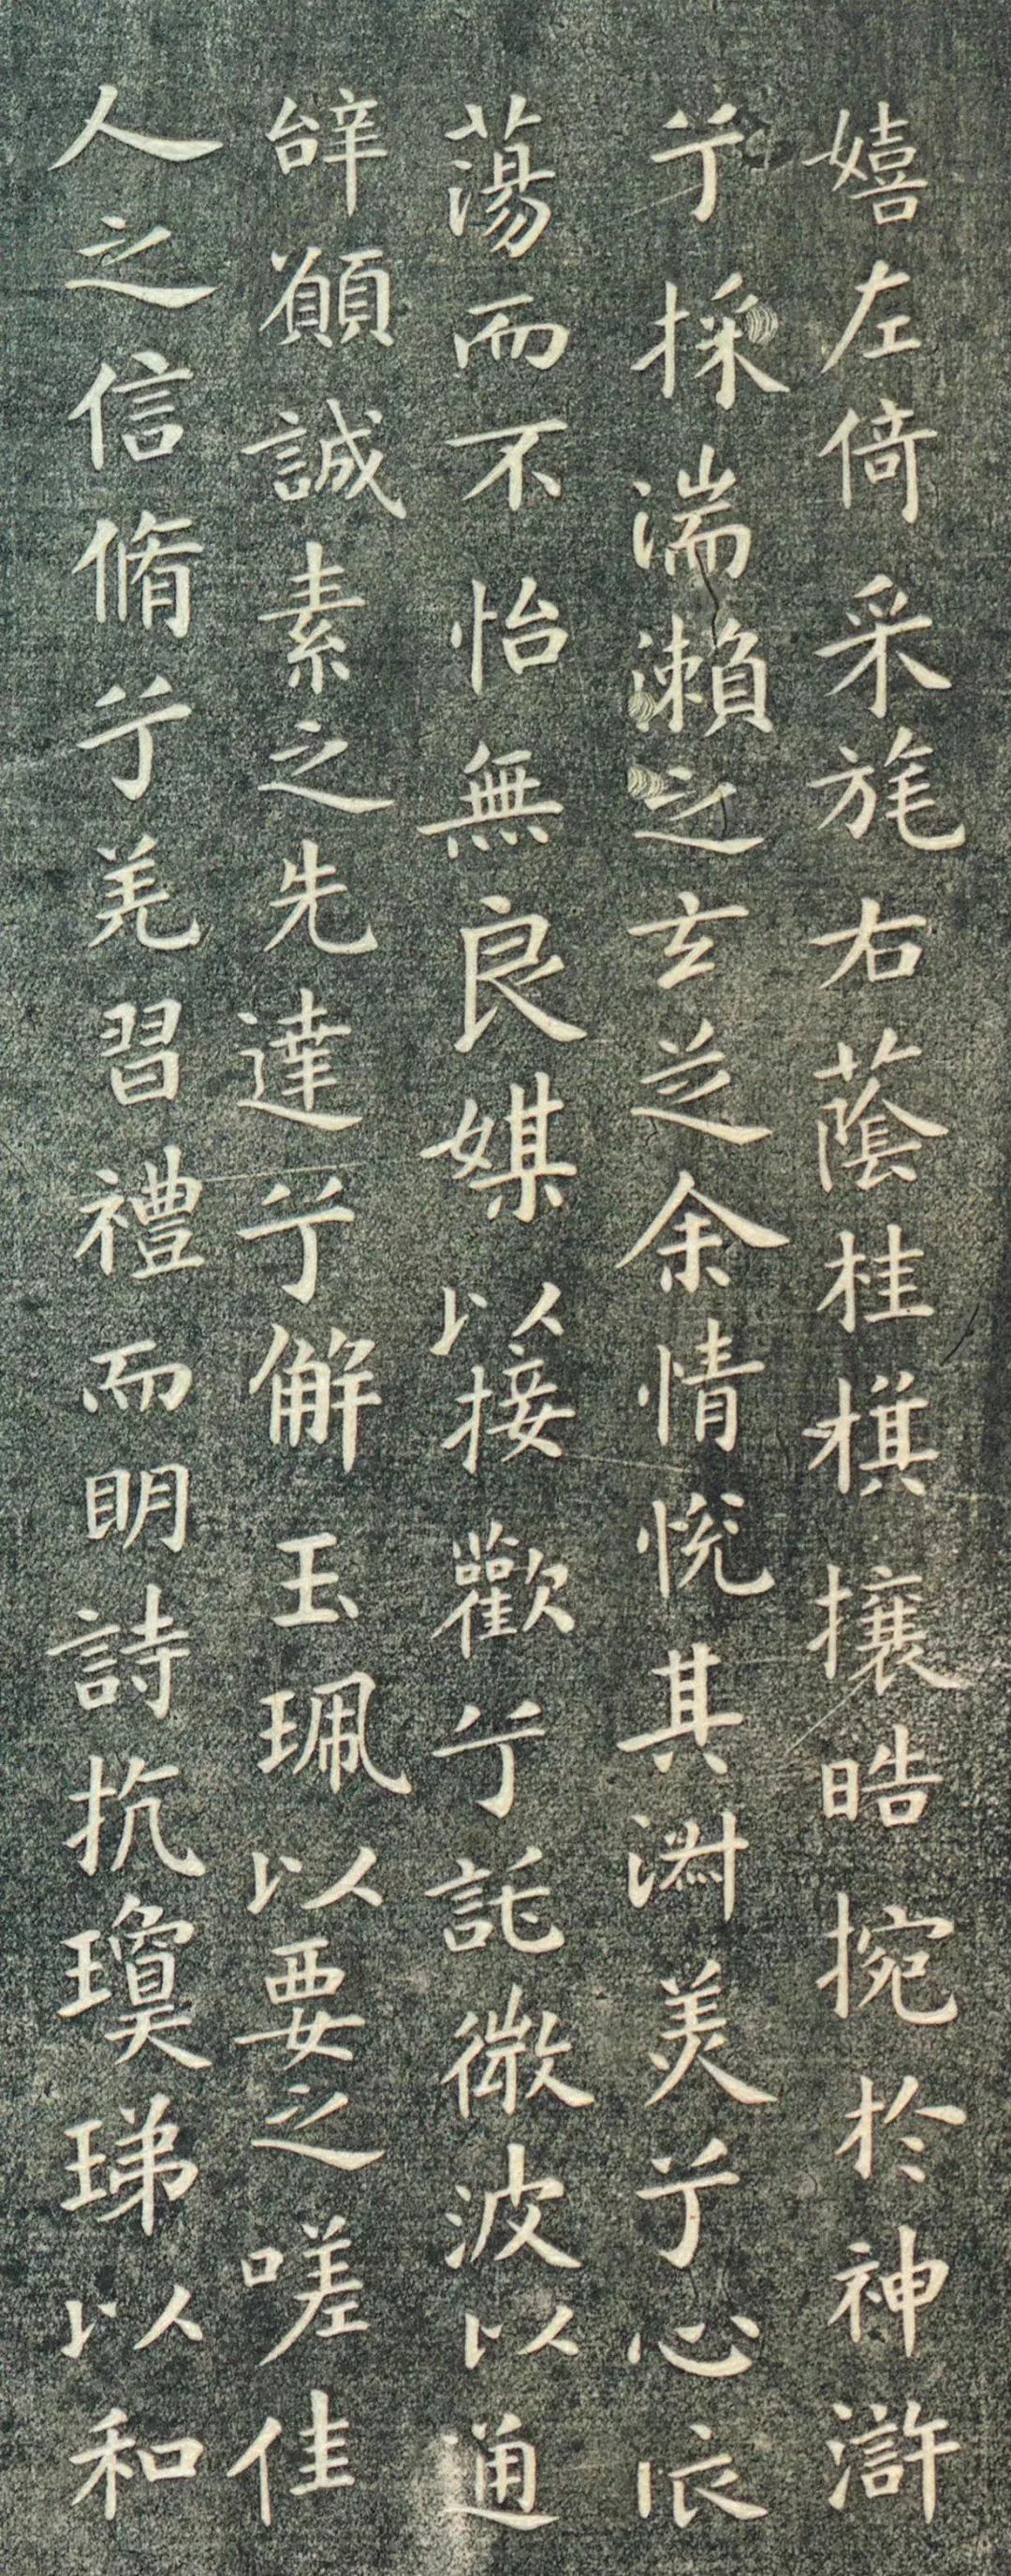 嬉左倚采旄右蔭桂棋攘皓捥於神滸
兮採湍瀬之玄芝余情悅其淑美兮心㡳
蕩而不怡無良媒以接歡兮託微波以通
辝願誠素之先達兮解玉珮以要之嗟佳
人之信脩兮羌習禮而明詩抗瓊珶以和